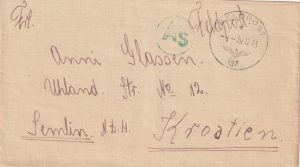 Frl. Feldpost
As
Anni Glassen.
Uhland. Str. No 12.
Semlin. N.D.H. Kroatien.